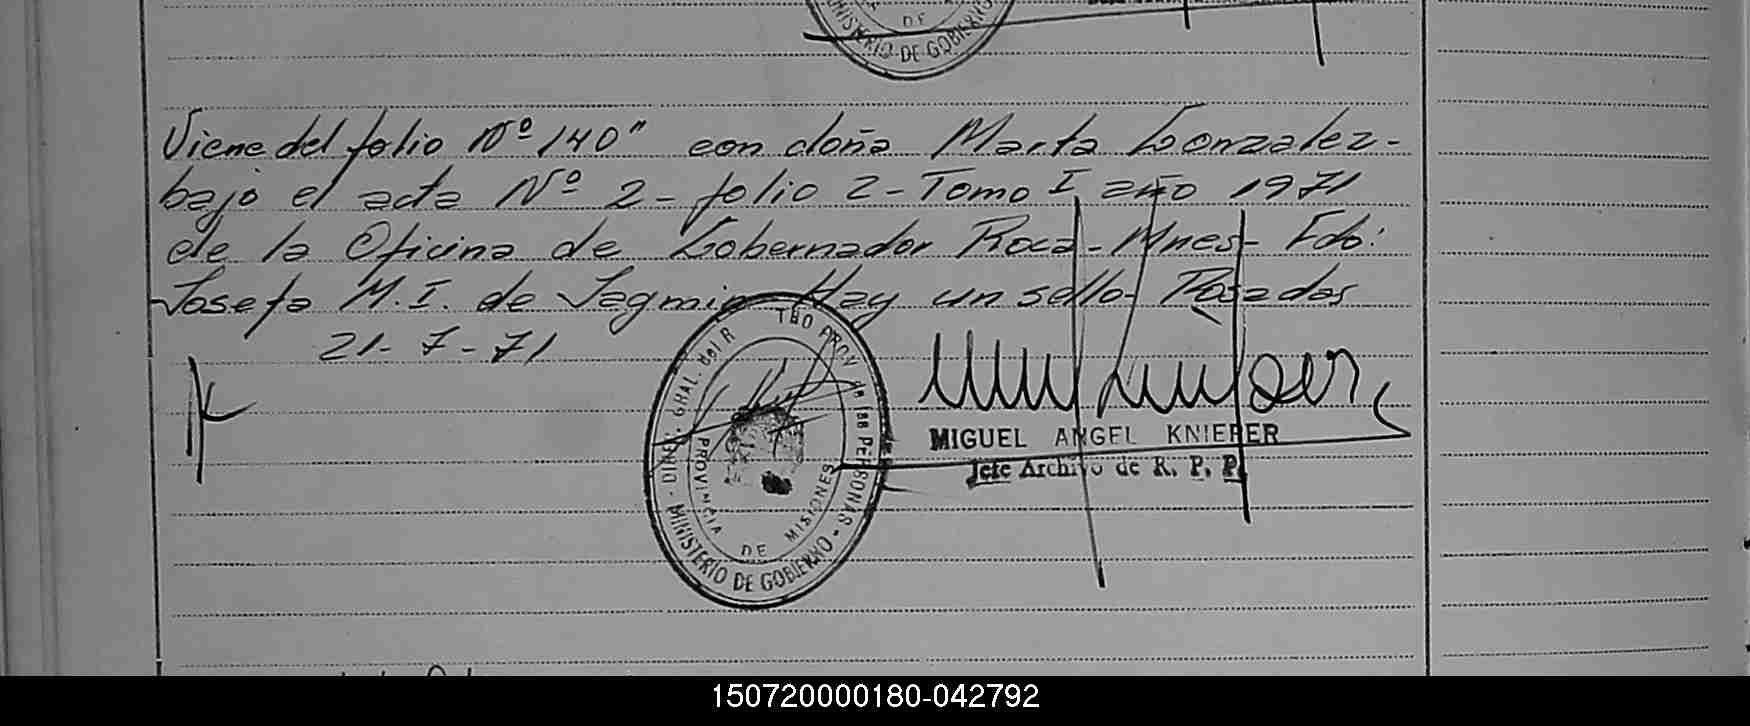 DE
MINISTERIO DE GOBIERNO
Viene del folio Nº 140" con doña Marta Gonzalez-
bajo el acta Nº 2- folio 2- Tomo I año 1971
de la Oficina de Gobernador Roca- Mnes- Fdo:
Josefa M.I. de Sagmin Hay un sello- Posadas
21- 7 - 71
DIREC. GRAL. del R TRO PROV de las PERSONAS - MINISTERIO DE GOBIERNO -
PROVINCIA DE MISIONES
MIGUEL ANGEL KNIEPER
Jefe Archivo de R. P. P.
150720000180-042792